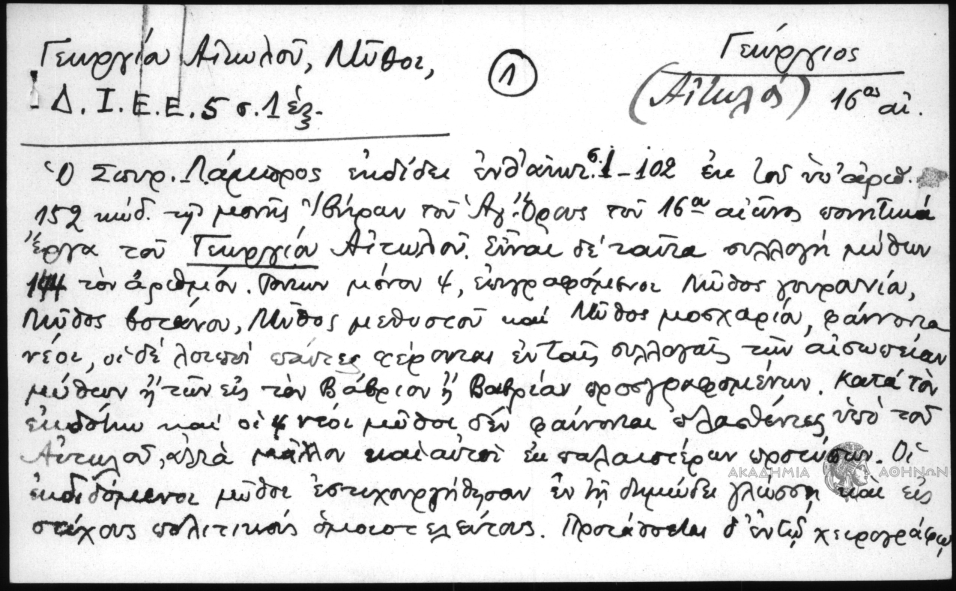 Γεωργίου Αἰτωλοῦ, Μῦθοι,
Δ. Ι. Ε. Ε. 5 σ. 1 ἑξ.
1
Γεώργιος
(Αἰτωλός) 16ος αἰ.
Ὁ Σπυρ. Λάμπρος ἐκδίδει ἐνθ' ἀνωτ. σ. 1-102 ἐκ τοῦ ὑπ' ἀριθ.
152 κώδ. τῆς μονῆς Ἰβήρων τοῦ Ἁγ. Ὄρους τοῦ 16ου αἰῶνος ποιητικά
ἔργα τοῦ Γεωργίου Αἰτωλοῦ. Εἶναι δὲ ταῦτα συλλογή μύθων
144 τὸν ἀριθμόν. Τούτων μόνον 4, ἐπιγραφόμενοι Μῦθος γουρουνίου,
Μῦθος βοτάνου, Μῦθος μεθυστοῦ καὶ Μῦθος μοσχαρίου, φαίνονται
νέοι, οἱ δὲ λοιποί πάντες φέρονται ἐν ταῖς συλλογαῖς τῶν αἰσωπείων
μύθων ἤ τῶν εἰς τὸν Βάβριον ἤ Βαβρίαν προσγραφομένων. Κατὰ τὸν
ἐκδότην καὶ οἱ 4 νέοι μῦθοι δέν φαίνονται πλασθέντες ὑπὸ τοῦ
Αἰτωλοῦ, ἀλλὰ μᾶλλον καὶ αὐτοὶ ἐκ παλαιοτέρων προτύπων. Οἱ
ἐκδιδόμενοι μῦθοι ἐστιχουργήθησαν ἐν τῇ δημώδει γλώσσῃ καὶ εἰς
στίχους πολιτικούς ὁμοιοτελεύτους. Προτάσσεται δ' ἐν τῷ χειρογράφῳ
ΑΚΑΔΗΜΙΑ ΑΘΗΝΩΝ